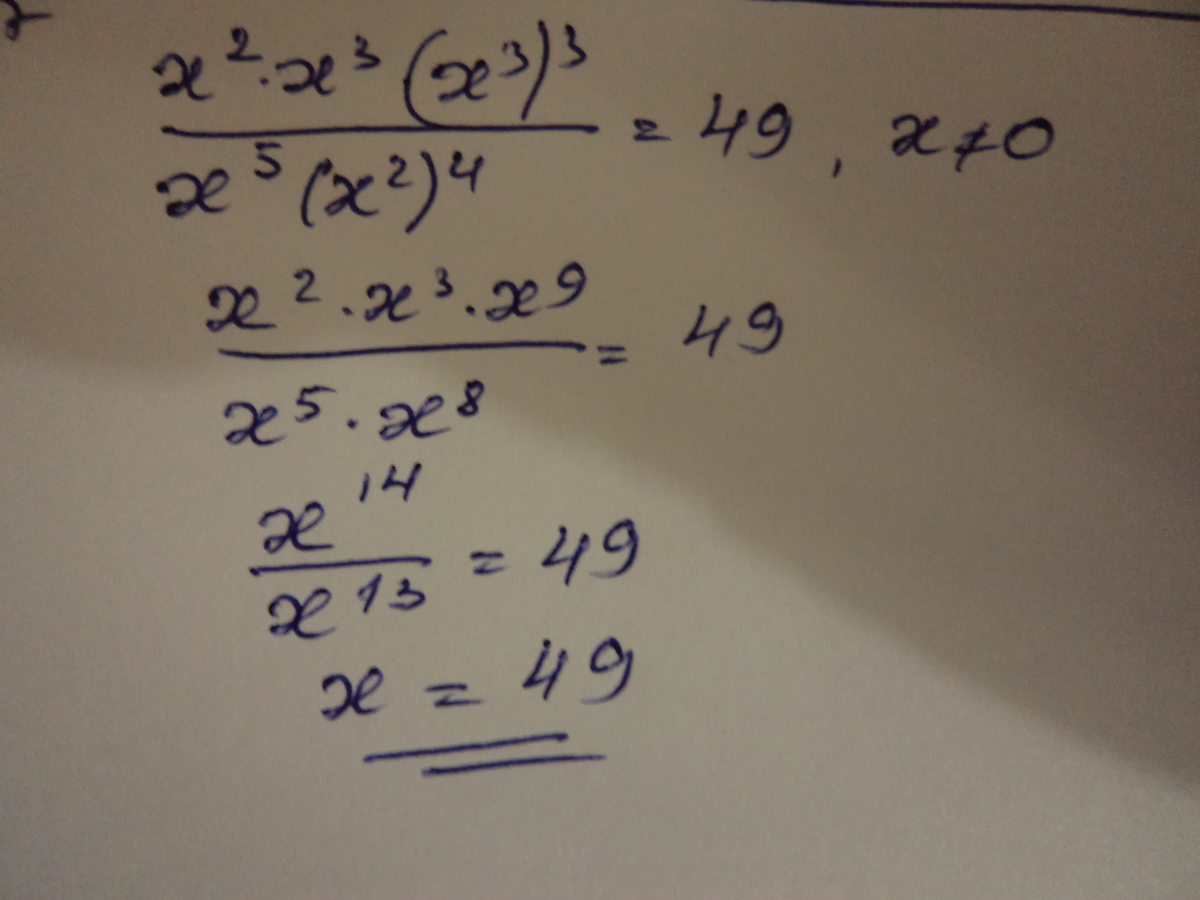 x² · x³ (x³)³ / x⁵ (x²)⁴ = 49, x ≠ 0
x² · x³ · x⁹ / x⁵ · x⁸ = 49
x¹⁴ / x¹³ = 49
x = 49